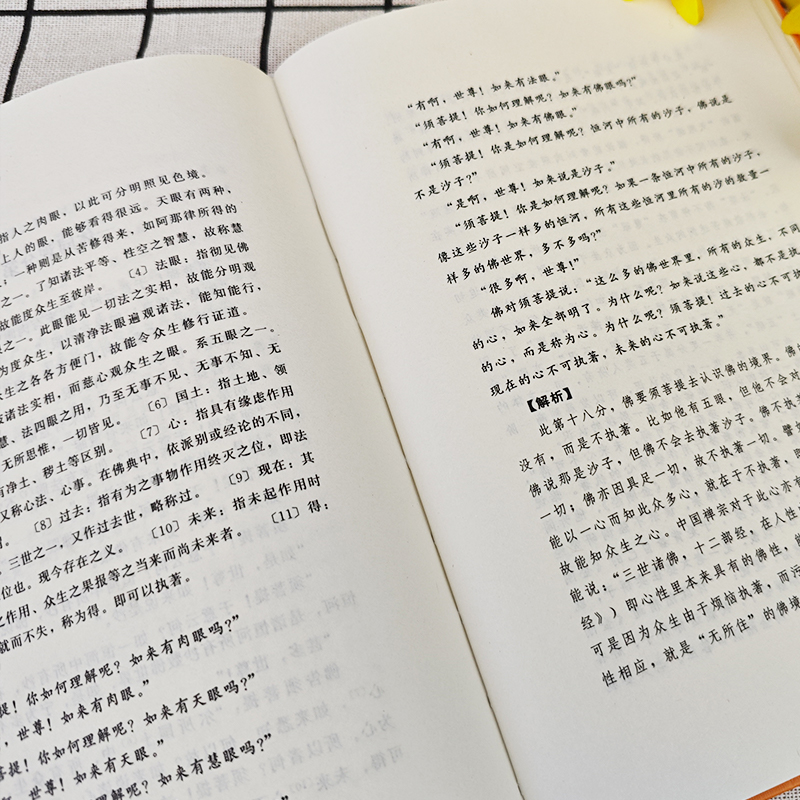 指人之肉眼，以此可分明照见色境。
上人的眼，能够看得很远。天眼有两种，
：一种则是从苦修得来，如阿那律所得的
之一。了知诸法平等、性空之智慧，故称慧
故能度众生至彼岸。〔4〕法眼：指彻见佛
之一。此眼能见一切法之实相，故能分明观
为度众生，以清净法眼遍观诸法，能知能行，
众生之各各方便门，故能令众生修行证道。
彼诸法实相，而慈心观众生之眼。系五眼之一。
慧、法四眼之用，乃至无事不见、无事不知、无
无所思惟，一切皆见。〔6〕国土：指土地、领
有净土、秽土等区别。〔7〕心：指具有缘虑作用
又称心法、心事。在佛典中，依派别或经论的不同，
〔8〕过去：指有为之事物作用终灭之位，即法
三世之一，又作过去世，略称过。〔9〕现在：其
位也。现今存在之义。〔10〕未来：指未起作用时
之作用、众生之果报等之当来而尚未来者。〔11〕得：
就而不失，称为得。即可以执著。
提！你如何理解呢？如来有肉眼吗？”
，世尊！如来有肉眼。”
菩提！你如何理解呢？如来有天眼吗？”
，世尊！如来有天眼。”
菩提！你如何理解呢？如来有慧眼吗？”
“有啊，世尊！如来有法眼。”
“须菩提！你如何理解呢？如来有佛眼吗？”
“有啊，世尊！如来有佛眼。”
“须菩提！你是如何理解呢？恒河中所有的沙子，佛说是
不是沙子？”
“是啊，世尊！如来说是沙子。”
“须菩提！你是如何理解呢？如果一条恒河中所有的沙子，
像这些沙子一样多的恒河，所有这些恒河里所有的沙的数量一
样多的佛世界，多不多吗？”
“很多啊，世尊！”
佛对须菩提说：“这么多的佛世界里，所有的众生，不同
的心，如来全部明了。为什么呢？如来说这些心，都不是执
的心，而是称为心。为什么呢？须菩提！过去的心不可执
现在的心不可执著，未来的心不可执著。”
【解析】
此第十八分，佛要须菩提去认识佛的境界。佛
没有，而是不执著。比如他有五眼，但他不会对
佛说那是沙子，但佛不会去执著沙子。佛不执
一切；佛亦因具足一切，故不执著一切。譬
能以一心而知此众多心，就在于不执著，
故能知众生之心。中国禅宗对于此心亦有
能说：“三世诸佛，十二部经，在人性
经》）即心性里本来具有的佛性，
可是因为众生由于烦恼执著，而污
性相应，就是“无所住”的佛境